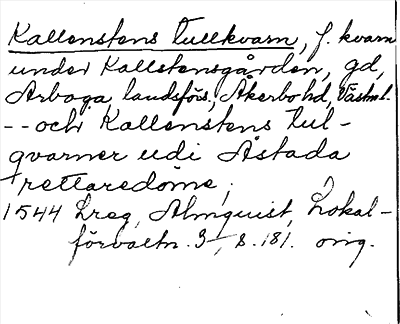 Kallenstens tullkvarn, f. kvarn
under Kallstensgården, gd,
Arboga landsförs., Åkerbo hd, Västml.
-- och Kallenstens tul-
qvarner udi Åstada
rettaredöme;
1544 Lreg, Almquist, Lokal-
förvaltn. 3, s. 181. orig.